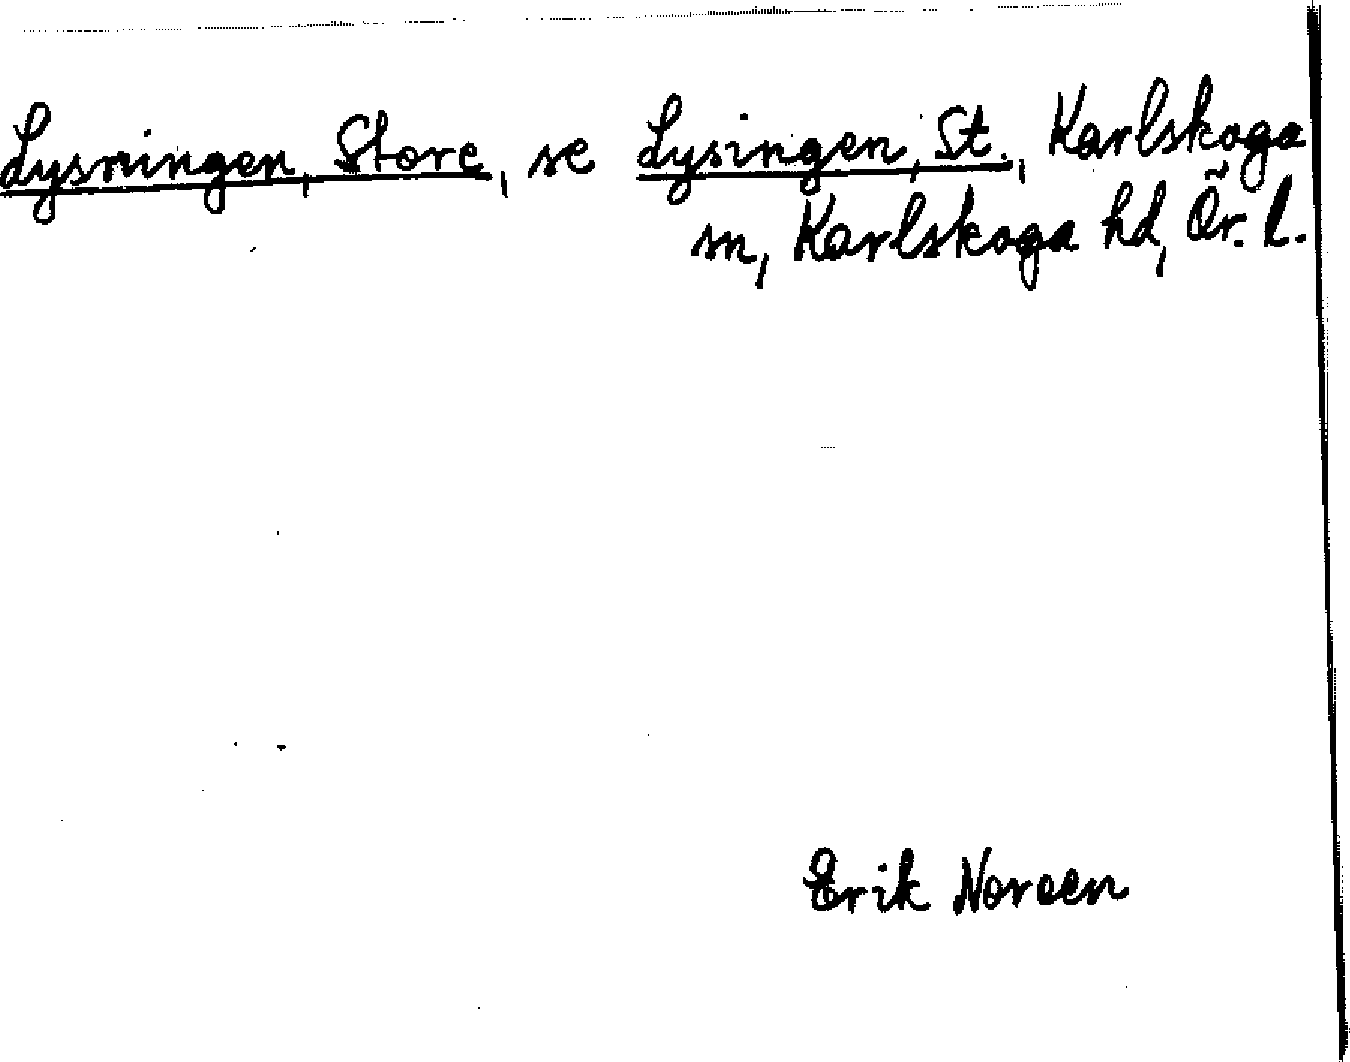 Lysningen, Store, se Lysingen, St., Karlskoga
sn, Karlskoga hd, Ör. l.
Erik Noreen